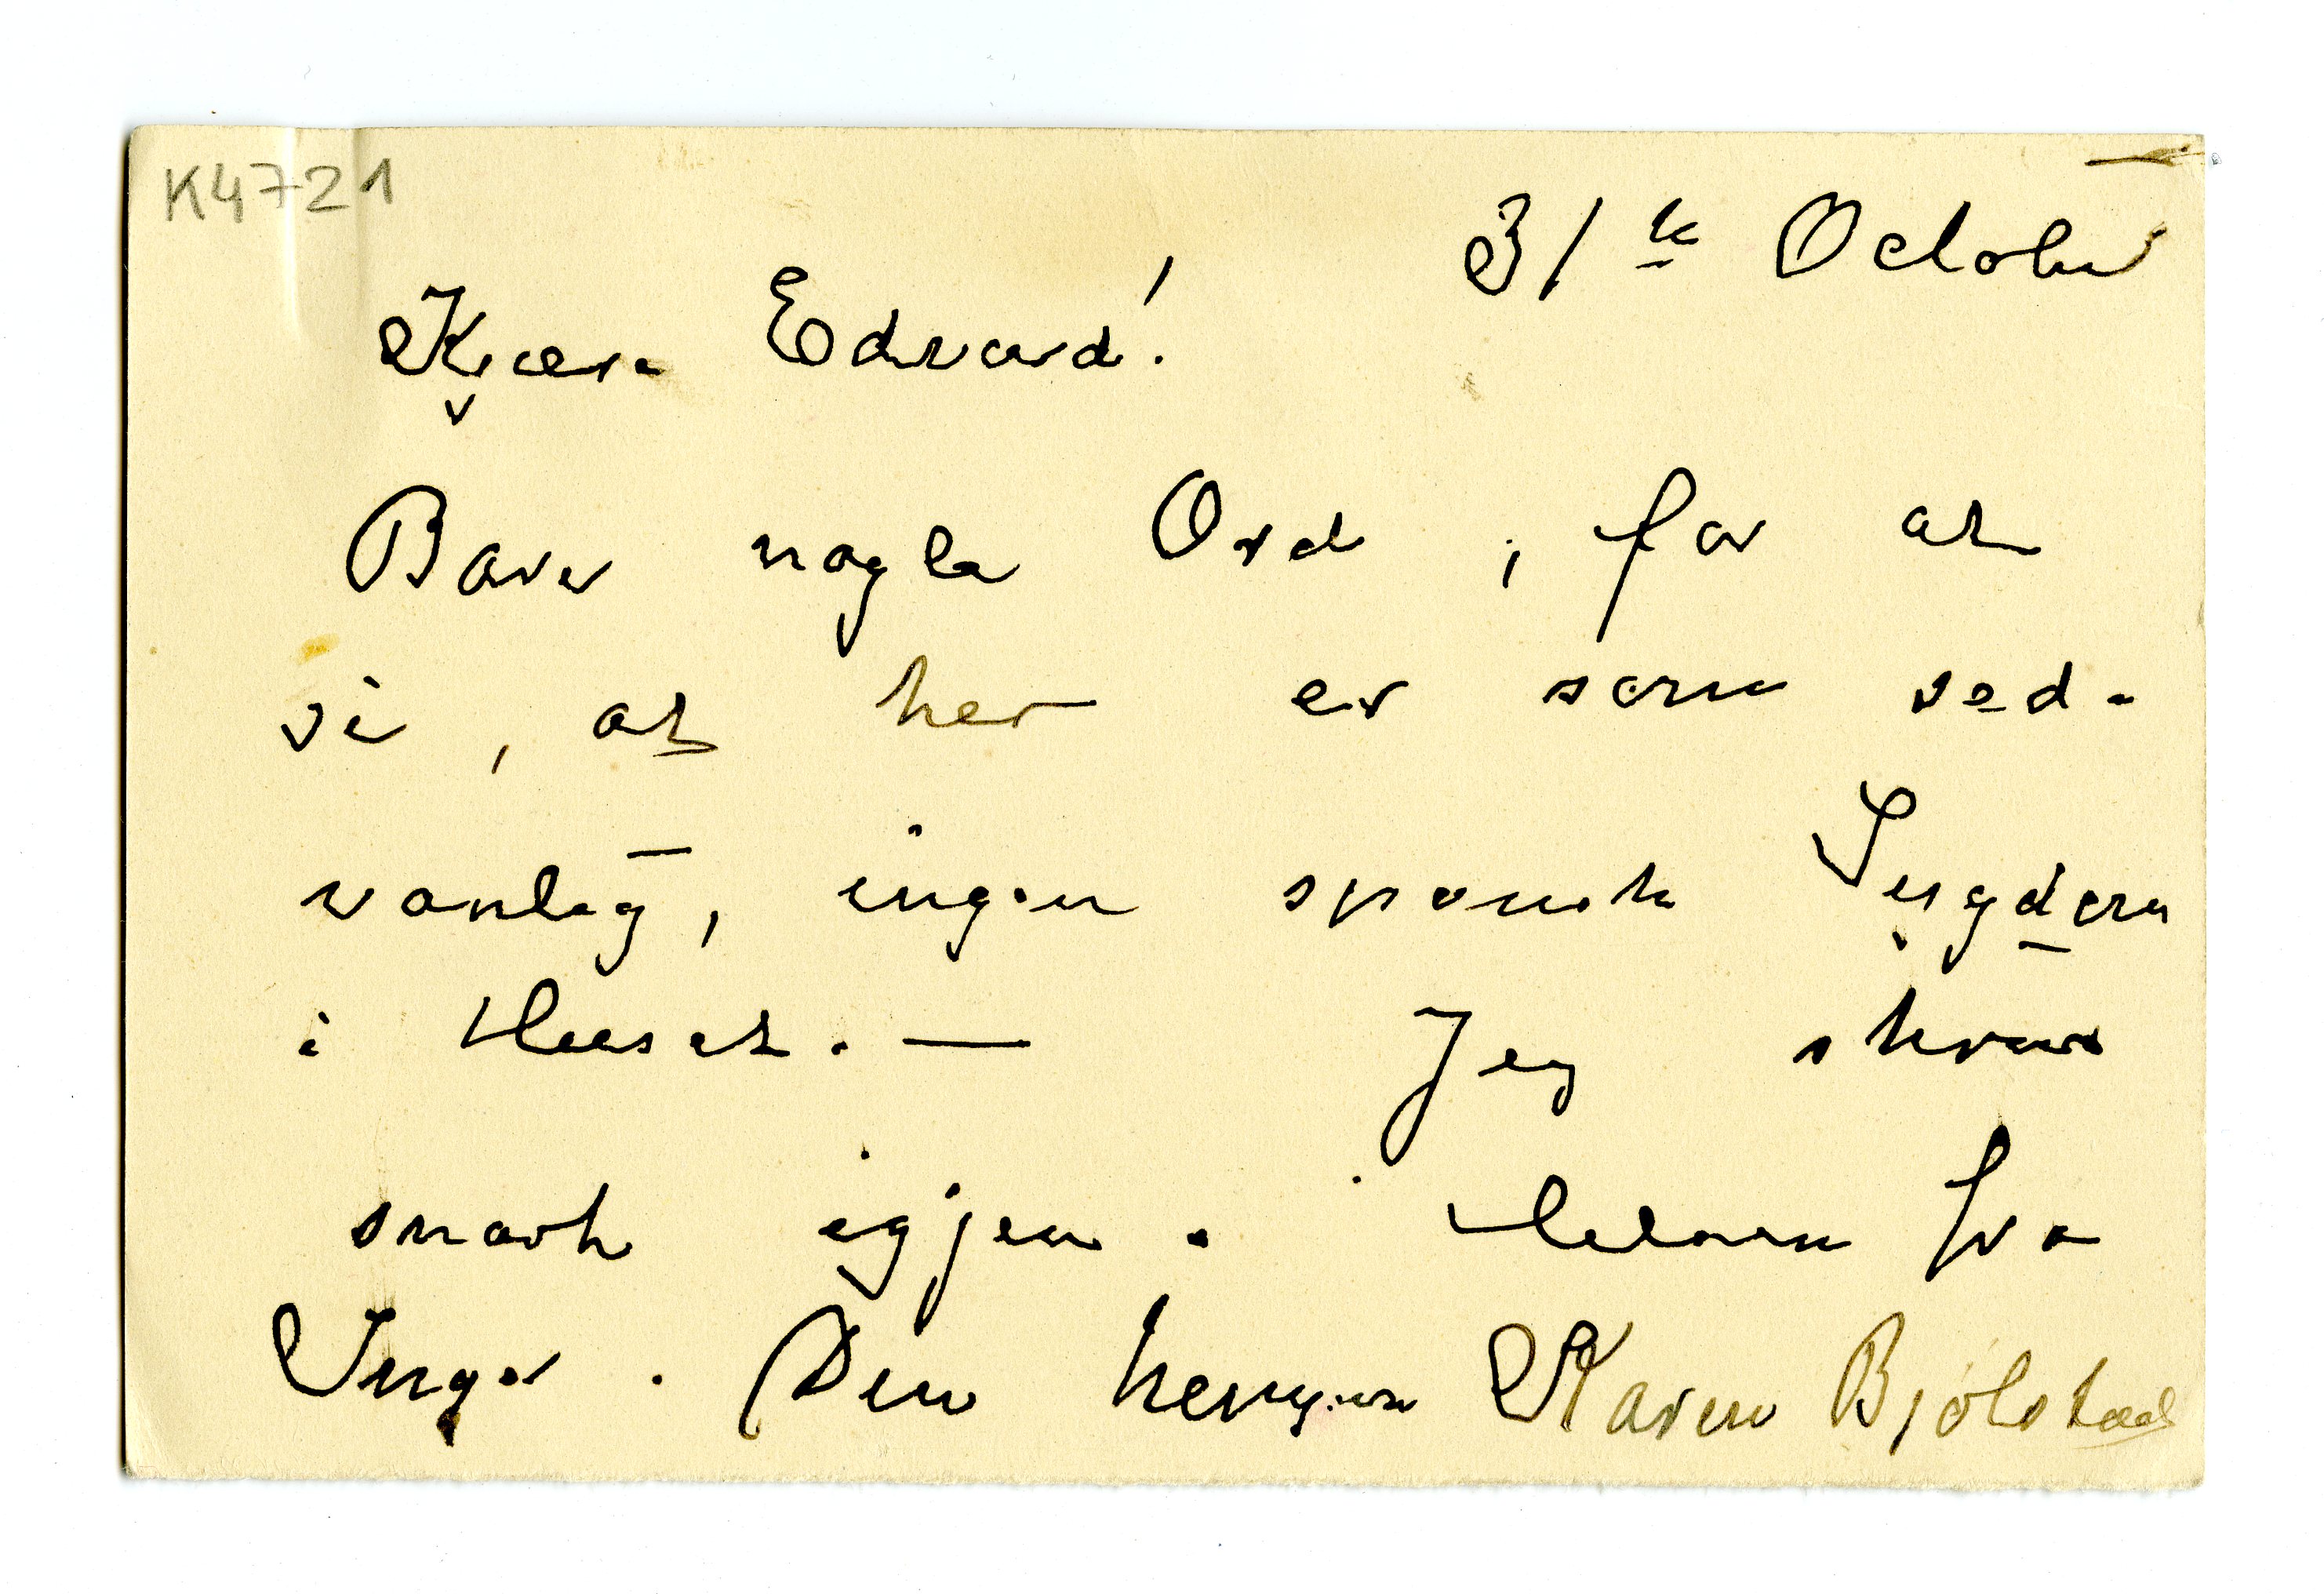 K4721
31te October
Kjære Edvard!
Bare nogle Ord, for at
si, at her er som sed-
vanlig, ingen spansk Sygdom
i Huset. — Jeg skriver
snart igjen. Hilsen fra
Inger. Din hengivne Karen Bjølstad